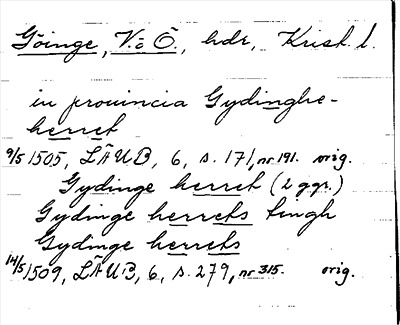 Göinge, V. o Ö., hdr, Krist. l.
in prouincia Gydinghe-
herret
9/5 1505, LÄUB, 6, s. 171, nr 191. orig.
Gydinge herret (2 ggr.)
Gydinge herrets tingh
Gydinge herrets
14/5 1509, LÄUB, 6, s. 279, nr 315. orig.